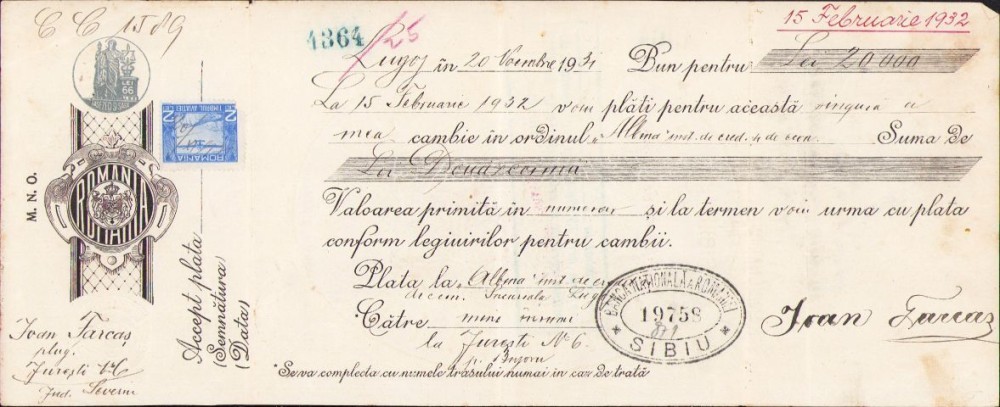 C C 1589
4364
/25
15 Februarie 1932
Lugoj în 20 Noembrie 1931 Bun pentru Lei 20000
La 15 Februarie 1932 voiu plăti pentru această singură a
mea cambie în ordinul „Albina" inst. de cred. și de econ. Suma de
Lei Douăzecimii
Valoarea primită în numerar și la termen voiu urma cu plata
conform legiuirilor pentru cambii.
Plata la „Albina" inst. de cred
de econ. Sucursala Lugoj
Către mine însumi
la Jurești N° 6.
*Se va complecta cu numele trasului numai în caz de trată
BANCA NAȚIONALĂ A ROMÂNIEI
19758
SIBIU
Ioan Tarcas
M. N. O.
ROMANIA
LEI 66
2 LEI TIMBRUL AVIAȚIEI 2
ROMANIA
Accept plata
(Semnătura)
(Data)
Ioan Tarcas
plug.
Jurești N° 6
Jud. Severin